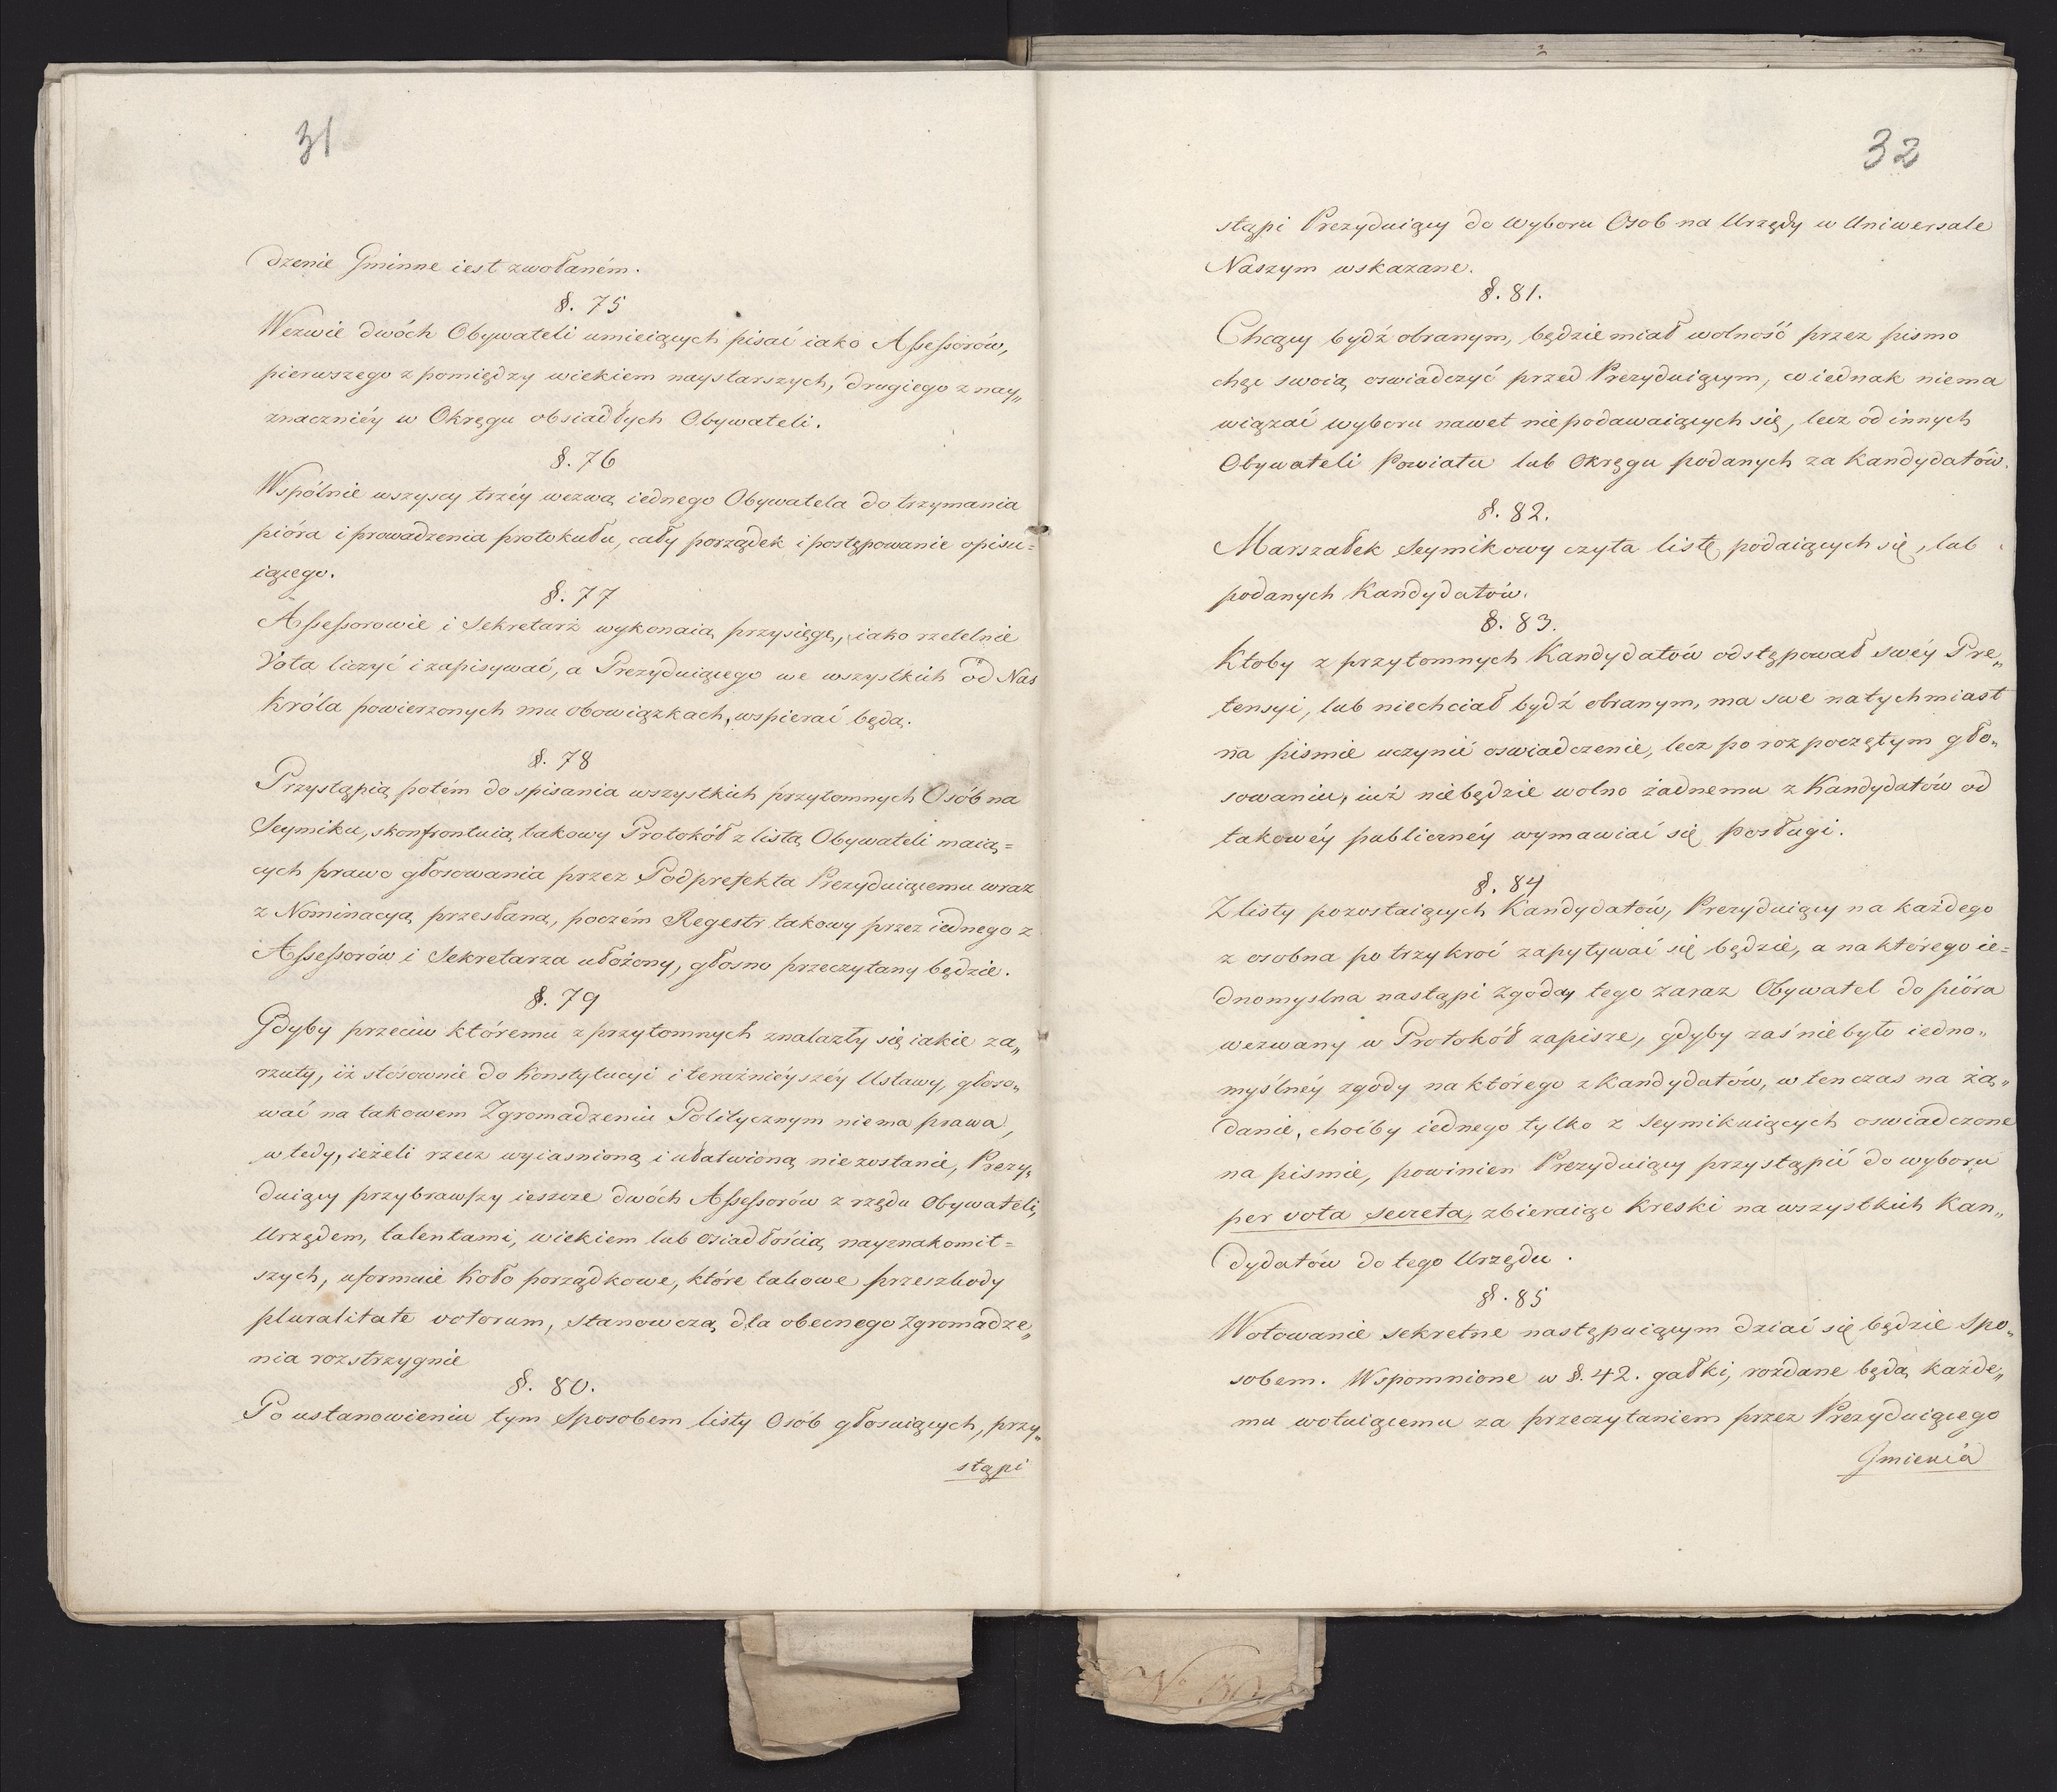 31
dzenie Gminne iest zwołaném.
§. 75
Wezwie dwóch Obywateli umieiących pisać iako Assessorów,
pierwszego z pomiędzy wiekiem naystarszych, drugiego z nay„
znaczniéy w Okręgu obsiadłych Obywateli.
§. 76
Wspólnie wszyscy trzéy wezwą iednego Obywatela do trzymania
pióra i prowadzenia protokułu, cały porządek i postępowanie opisu=
iącego.
§. 77
Assessorowie i Sekretarz wykonaią przysięgę, iako rzetelnie
Vota liczyć i zapisywać, a Prezyduiącego we wszystkich od Nas
Króla powierzonych mu obowiązkach, wspierać będą.
§. 78
Przystąpią potém do spisania wszystkich przytomnych Osób na
Seymiku, skonfrontuią takowy Protokół z listą Obywateli maią=
cych prawo głosowania przez Podprefekta Prezyduiącemu wraz
z Nominacyą przesłaną, poczém Regestr takowy przez iednego z
Assessorów i Sekretarza ułożony, głosno przeczytany będzie.
§. 79
Gdyby przeciw któremu z przytomnych znalazły się iakie za„
rzuty, iż stósownie do Konstytucyi i teraźniéyszéy Ustawy, głoso„
wać na takowem Zgromadzeniu Politycznym niema prawa,
wtedy, ieżeli rzecz wyiasnioną i ułatwioną nie zostanie, Prezy„
duiący przybrawszy ieszcze dwóch Assessorów z rzędu Obywateli,
Urzędem, talentami, wiekiem lub osiadłością nayznakomit=
szych, uformuie Koło porządkowe, które takowe przeszkody
pluralitate votorum, stanowczą dla obecnego Zgromadze„
nia rozstrzygnie
§. 80.
Po ustanowieniu tym Sposobem listy Osób głosuiących, przy„
stąpi
32
stąpi Prezyduiący do Wyboru Osob na Urzędy w Uniwersale
Naszym wskazane.
§. 81.
Chcący bydź obranym, będzie miał wolność przez pismo
chęc swoią oswiadczyć przed Prezyduiącym, co iednak niema
wiązać wyboru nawet nie podawaiących się, lecz od innych
Obywateli Powiatu lub Okręgu podanych za Kandydatów.
§. 82.
Marszałek Seymikowy czyta listę podaiących się, lub
podanych Kandydatów.
§. 83.
Ktoby z przytomnych Kandydatów odstępował swéy Pre„
tensyi, lub niechciał bydź obranym, ma swe natychmiast
na pismie uczynić oswiadczenie, lecz po rozpoczętym gło„
sowaniu, iuż niebędzie wolno żadnemu z Kandydatów od
takowéy publicznéy wymawiać się posługi.
§. 84
Z listy pozostaiących Kandydatów, Prezyduiący na każdego
z osobna po trzykroć zapytywać się będzie, a na którego ie=
dnomyslna nastąpi zgoda, tego zaraz Obywatel do pióra
wezwany w Protokół zapisze, gdyby zaś niebyło iedno„
myślnéy zgody na którego z Kandydatów, wtenczas na żą„
danie, choćby iednego tylko z Seymikuiących oswiadczone
na pismie, powinien Prezyduiący przystąpić do wyboru
per vota secreta, zbieraiąc Kreski na wszystkich Kan„
dydatów do tego Urzędu.
§. 85
Wotowanie sekretne następuiącym dziać się będzie Spo„
sobem. Wspomnione w §. 42. gałki, rozdane będą każde„
mu wotuiącemu za przeczytaniem przez Prezyduiącego
Jmienia